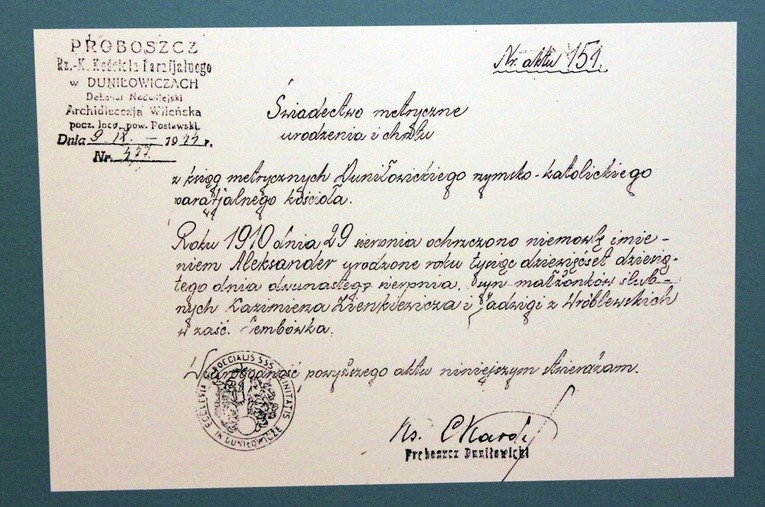 PROBOSZCZ
Rz.-K. Kościoła Parafjalnego
w DUNIŁOWICZACH
Dekanat Nadwilejski
Archidiecezja Wileńska
pocz. loco, pow. Postawski.
Dnia 9. IX. — 19 r.
Nr.
Nr. aktu 151.
Świadectwo metryczne
urodzenia i chrztu
z ksiąg metrycznych Duniłowickiego rzymsko-katolickiego
parafjalnego kościoła.
Roku 1910 dnia 29 sierpnia ochrzczono niemowlę imie-
niem Aleksander urodzone roku tysiąc dziewięćset dziesią-
tego dnia dwunastego sierpnia. Syn małżonków ślub-
nych Kazimierza Zienkiewicza i Jadwigi z Wróblewskich
w zaśc. Tembówka.
Wiarogodność powyższego aktu niniejszym stwierdzam.
ECCLESIA PAROCCIALIS SSS. TRINITATIS
IN DUNIŁOWICZE
Ks.
Proboszcz Duniłowicki